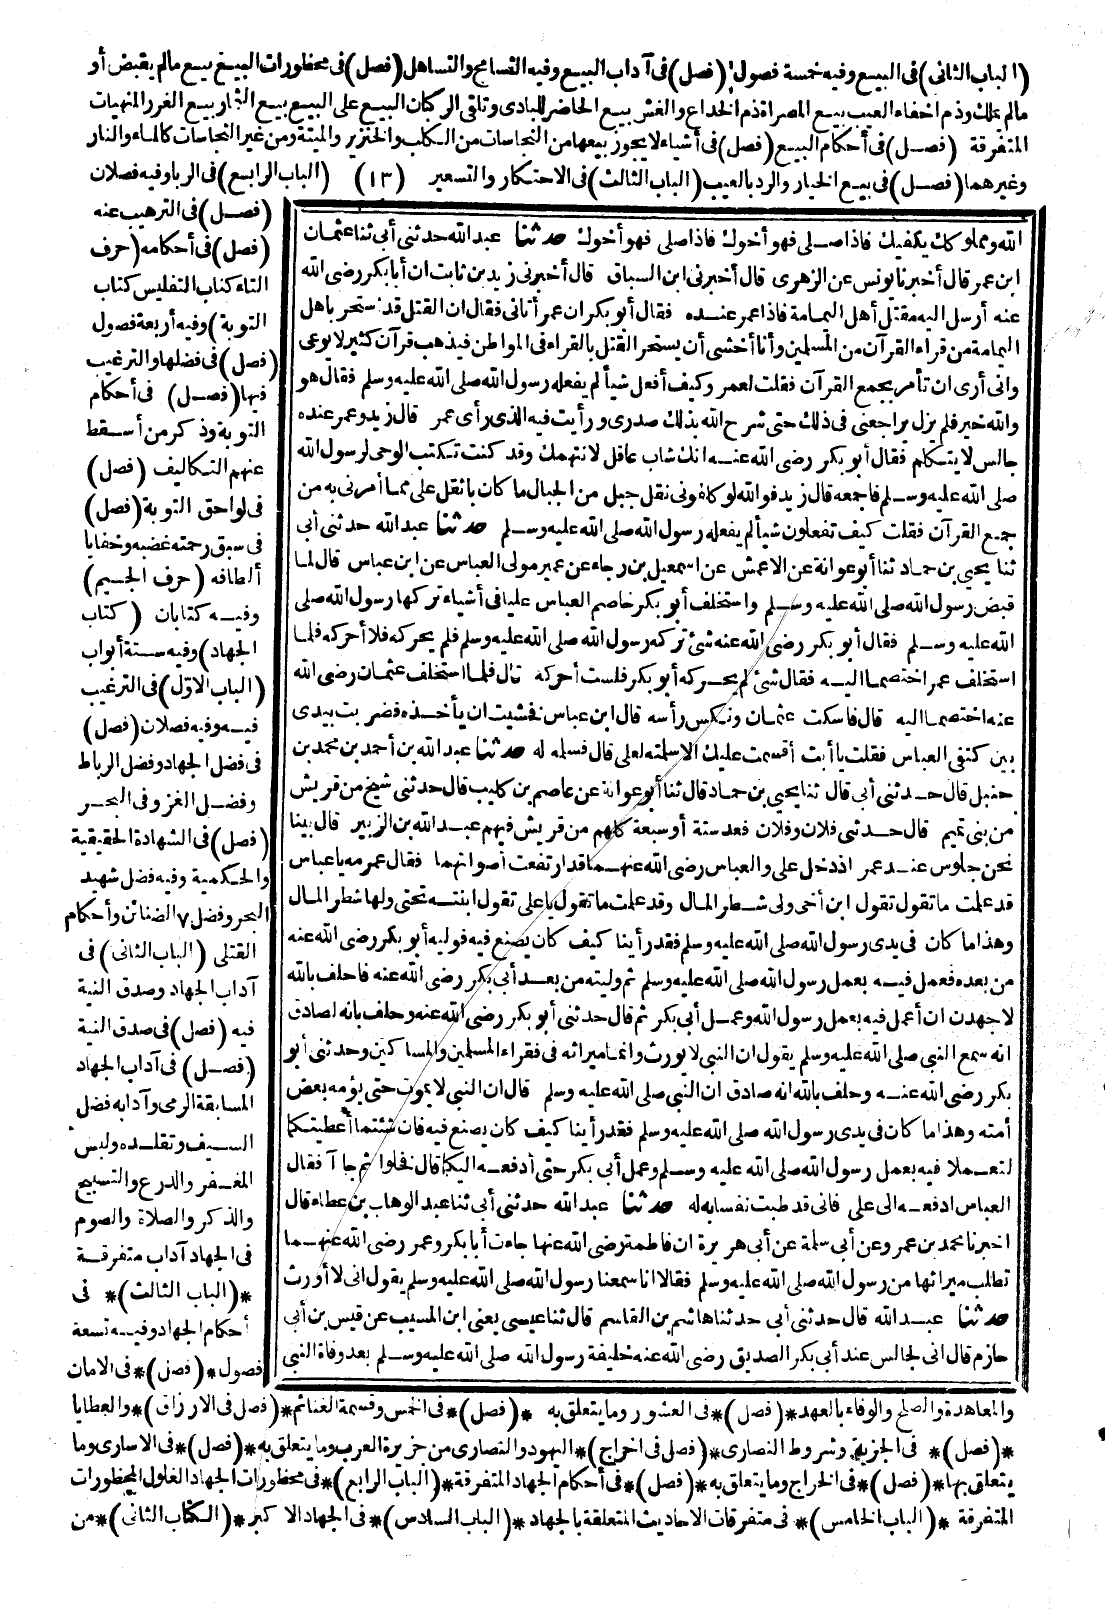 (الباب الثانى) فى البيع وفيه خمسة فصول (فصل) فى آداب البيع وفيه التسامح والتساهل (فصل) فى محظورات البيع بيع مالم يقبض أو
مالم يملك وذم اخفاء العيب بيع المصراة ذم الخداع والغش بيع الحاضر للبادى وتلقى الركبان البيع على البيع بيع الثمار بيع الغرر المنهيات
المتفرقة (فصل) فى أحكام البيع (فصل) فى أشياء لا يجوز بيعها من النجاسات من الكلب والخنزير والميتة ومن غير النجاسات كالماء والنار
وغيرهما (فصل) فى بيع الخيار والرد بالعيب (الباب الثالث) فى الاحتكار والتسعير (١٣) (الباب الرابع) فى الربا وفيه فصلان
(فصل) فى الترهيب عنه
(فصل) فى أحكامه (حرف
التاء كتاب التفليس كتاب
التوبة) وفيه أربعة فصول
(فصل) فى فضلها والترغيب
فيها (فصل) فى أحكام
التوبة وذكر من أسقط
عنهم التكاليف (فصل)
فى لواحق التوبة (فصل)
فى سبق رحمته غضبه وخفايا
ألطافه (حرف الجيم)
وفيه كتابان (كتاب
الجهاد) وفيه ستة أبواب
(الباب الاول) فى الترغيب
فيه وفيه فصلان (فصل)
فى فضل الجهاد وفضل الرباط
وفضل الغزو فى البحر
(فصل) فى الشهادة الحقيقية
والحكمية وفيه فضل شهيد
البحر وفضل ٧ الضنائن وأحكام
القتلى (الباب الثانى) فى
آداب الجهاد وصدق النية
فيه (فصل) فى صدق النية
(فصل) فى آداب الجهاد
المسابقة الرمى وآدابه فضل
السيف وتقلده ولبس
المغفر والدرع والتسبيح
والذكر والصلاة والصوم
فى الجهاد آداب متفرقة
*(الباب الثالث)* فى
أحكام الجهاد وفيه تسعة
فصول *(فصل)* فى الامان
الله ومملوكك يكفيك فاذا صلى فهو أخوك فاذا صلى فهو أخوك حدثنا عبد الله حدثنى أبى ثنا عثمان
ابن عمر قال أخبرنا يونس عن الزهرى قال أخبرنى ابن السباق قال أخبرنى زيد بن ثابت ان أبا بكر رضى الله
عنه أرسل اليه مقتل أهل اليمامة فاذا عمر عنده فقال أبو بكر ان عمر أتانى فقال ان القتل قد استحر باهل
اليمامة من قراء القرآن من المسلمين وأنا أخشى أن يستحر القتل بالقراء فى المواطن فيذهب قرآن كثير لا يوعى
وانى أرى ان تأمر بجمع القرآن فقلت لعمر وكيف أفعل شيأ لم يفعله رسول الله صلى الله عليه وسلم فقال هو
والله خير فلم يزل يراجعنى فى ذلك حتى شرح الله بذلك صدرى ورأيت فيه الذى رأى عمر قال زيد وعمر عنده
جالس لا يتكلم فقال أبو بكر رضى الله عنه انك شاب عاقل لا نتهمك وقد كنت تكتب الوحى لرسول الله
صلى الله عليه وسلم فاجمعه قال زيد فوالله لو كلفونى نقل جبل من الجبال ما كان باثقل على مما أمرنى به من
جمع القرآن فقلت كيف تفعلون شيأ لم يفعله رسول الله صلى الله عليه وسلم حدثنا عبد الله حدثنى أبى
ثنا يحيى بن حماد ثنا أبو عوانة عن الاعمش عن اسمعيل بن رجاء عن عمير مولى العباس عن ابن عباس قال لما
قبض رسول الله صلى الله عليه وسلم واستخلف أبو بكر خاصم العباس عليا فى أشياء تركها رسول الله صلى
الله عليه وسلم فقال أبو بكر رضى الله عنه شئ تركه رسول الله صلى الله عليه وسلم فلم يحركه فلا أحركه فلما
استخلف عمر اختصما اليه فقال شئ لم يحركه أبو بكر فلست أحركه قال فلما استخلف عثمان رضى الله
عنه اختصما اليه قال فاسكت عثمان ونكس رأسه قال ابن عباس فخشيت ان يأخذه فضربت بيدى
بين كتفى العباس فقلت يا أبت أقسمت عليك الا سلمته لعلى قال فسلمه له حدثنا عبد الله بن أحمد بن محمد بن
حنبل قال حدثنى أبى قال ثنا يحيى بن حماد قال ثنا أبو عوانة عن عاصم بن كليب قال حدثنى شيخ من قريش
من بنى تميم قال حدثنى فلان وفلان فعد ستة أو سبعة كلهم من قريش فيهم عبد الله بن الزبير قال بينا
نحن جلوس عند عمر اذ دخل على والعباس رضى الله عنهما قد ارتفعت أصواتهما فقال عمر مه يا عباس
قد علمت ما تقول تقول ابن أخى ولى شطر المال وقد علمت ما تقول يا على تقول ابنته تحتى ولها شطر المال
وهذا ما كان فى يدى رسول الله صلى الله عليه وسلم فقد رأينا كيف كان يصنع فيه فوليه أبو بكر رضى الله عنه
من بعده فعمل فيه بعمل رسول الله صلى الله عليه وسلم ثم وليته من بعد أبى بكر رضى الله عنه فاحلف بالله
لاجهدن ان أعمل فيه بعمل رسول الله وعمل أبى بكر ثم قال حدثنى أبو بكر رضى الله عنه وحلف بانه لصادق
انه سمع النبى صلى الله عليه وسلم يقول ان النبى لا يورث وانما ميراثه فى فقراء المسلمين والمساكين وحدثنى أبو
بكر رضى الله عنه وحلف بالله انه صادق ان النبى صلى الله عليه وسلم قال ان النبى لا يموت حتى يؤمه بعض
أمته وهذا ما كان فى يدى رسول الله صلى الله عليه وسلم فقد رأينا كيف كان يصنع فيه فان شئتما أعطيتكما
لتعملا فيه بعمل رسول الله صلى الله عليه وسلم وعمل أبى بكر حتى أدفعه اليكما قال فخلوا ثم جاآ فقال
العباس ادفعه الى على فانى قد طبت نفسا به له حدثنا عبد الله حدثنى أبى ثنا عبد الوهاب بن عطاء قال
اخبرنا محمد بن عمر وعن أبى سلمة عن أبى هريرة ان فاطمة رضى الله عنها جاءت أبا بكر وعمر رضى الله عنهما
تطلب ميراثها من رسول الله صلى الله عليه وسلم فقالا انا سمعنا رسول الله صلى الله عليه وسلم يقول انى لا أورث
حدثنا عبد الله قال حدثنى أبى حدثنا هاشم بن القاسم قال ثنا عيسى يعنى ابن المسيب عن قيس بن أبى
حازم قال انى لجالس عند أبى بكر الصديق رضى الله عنه خليفة رسول الله صلى الله عليه وسلم بعد وفاة النبى
والمعاهدة والصلح والوفاء بالعهد *(فصل)* فى العشور وما يتعلق به *(فصل)* فى الخمس وقسمة الغنائم *(فصل فى الارزاق)* والعطايا
*(فصل)* فى الجزية وشروط النصارى *(فصل فى اخراج)* اليهود والنصارى من جزيرة العرب وما يتعلق به *(فصل)* فى الاسارى وما
يتعلق بها *(فصل)* فى الخراج وما يتعلق به *(فصل)* فى أحكام الجهاد المتفرقة *(الباب الرابع)* فى محظورات الجهاد الغلول المحظورات
المتفرقة *(الباب الخامس)* فى متفرقات الاحاديث المتعلقة بالجهاد *(الباب السادس)* فى الجهاد الاكبر *(الكتاب الثانى)* من